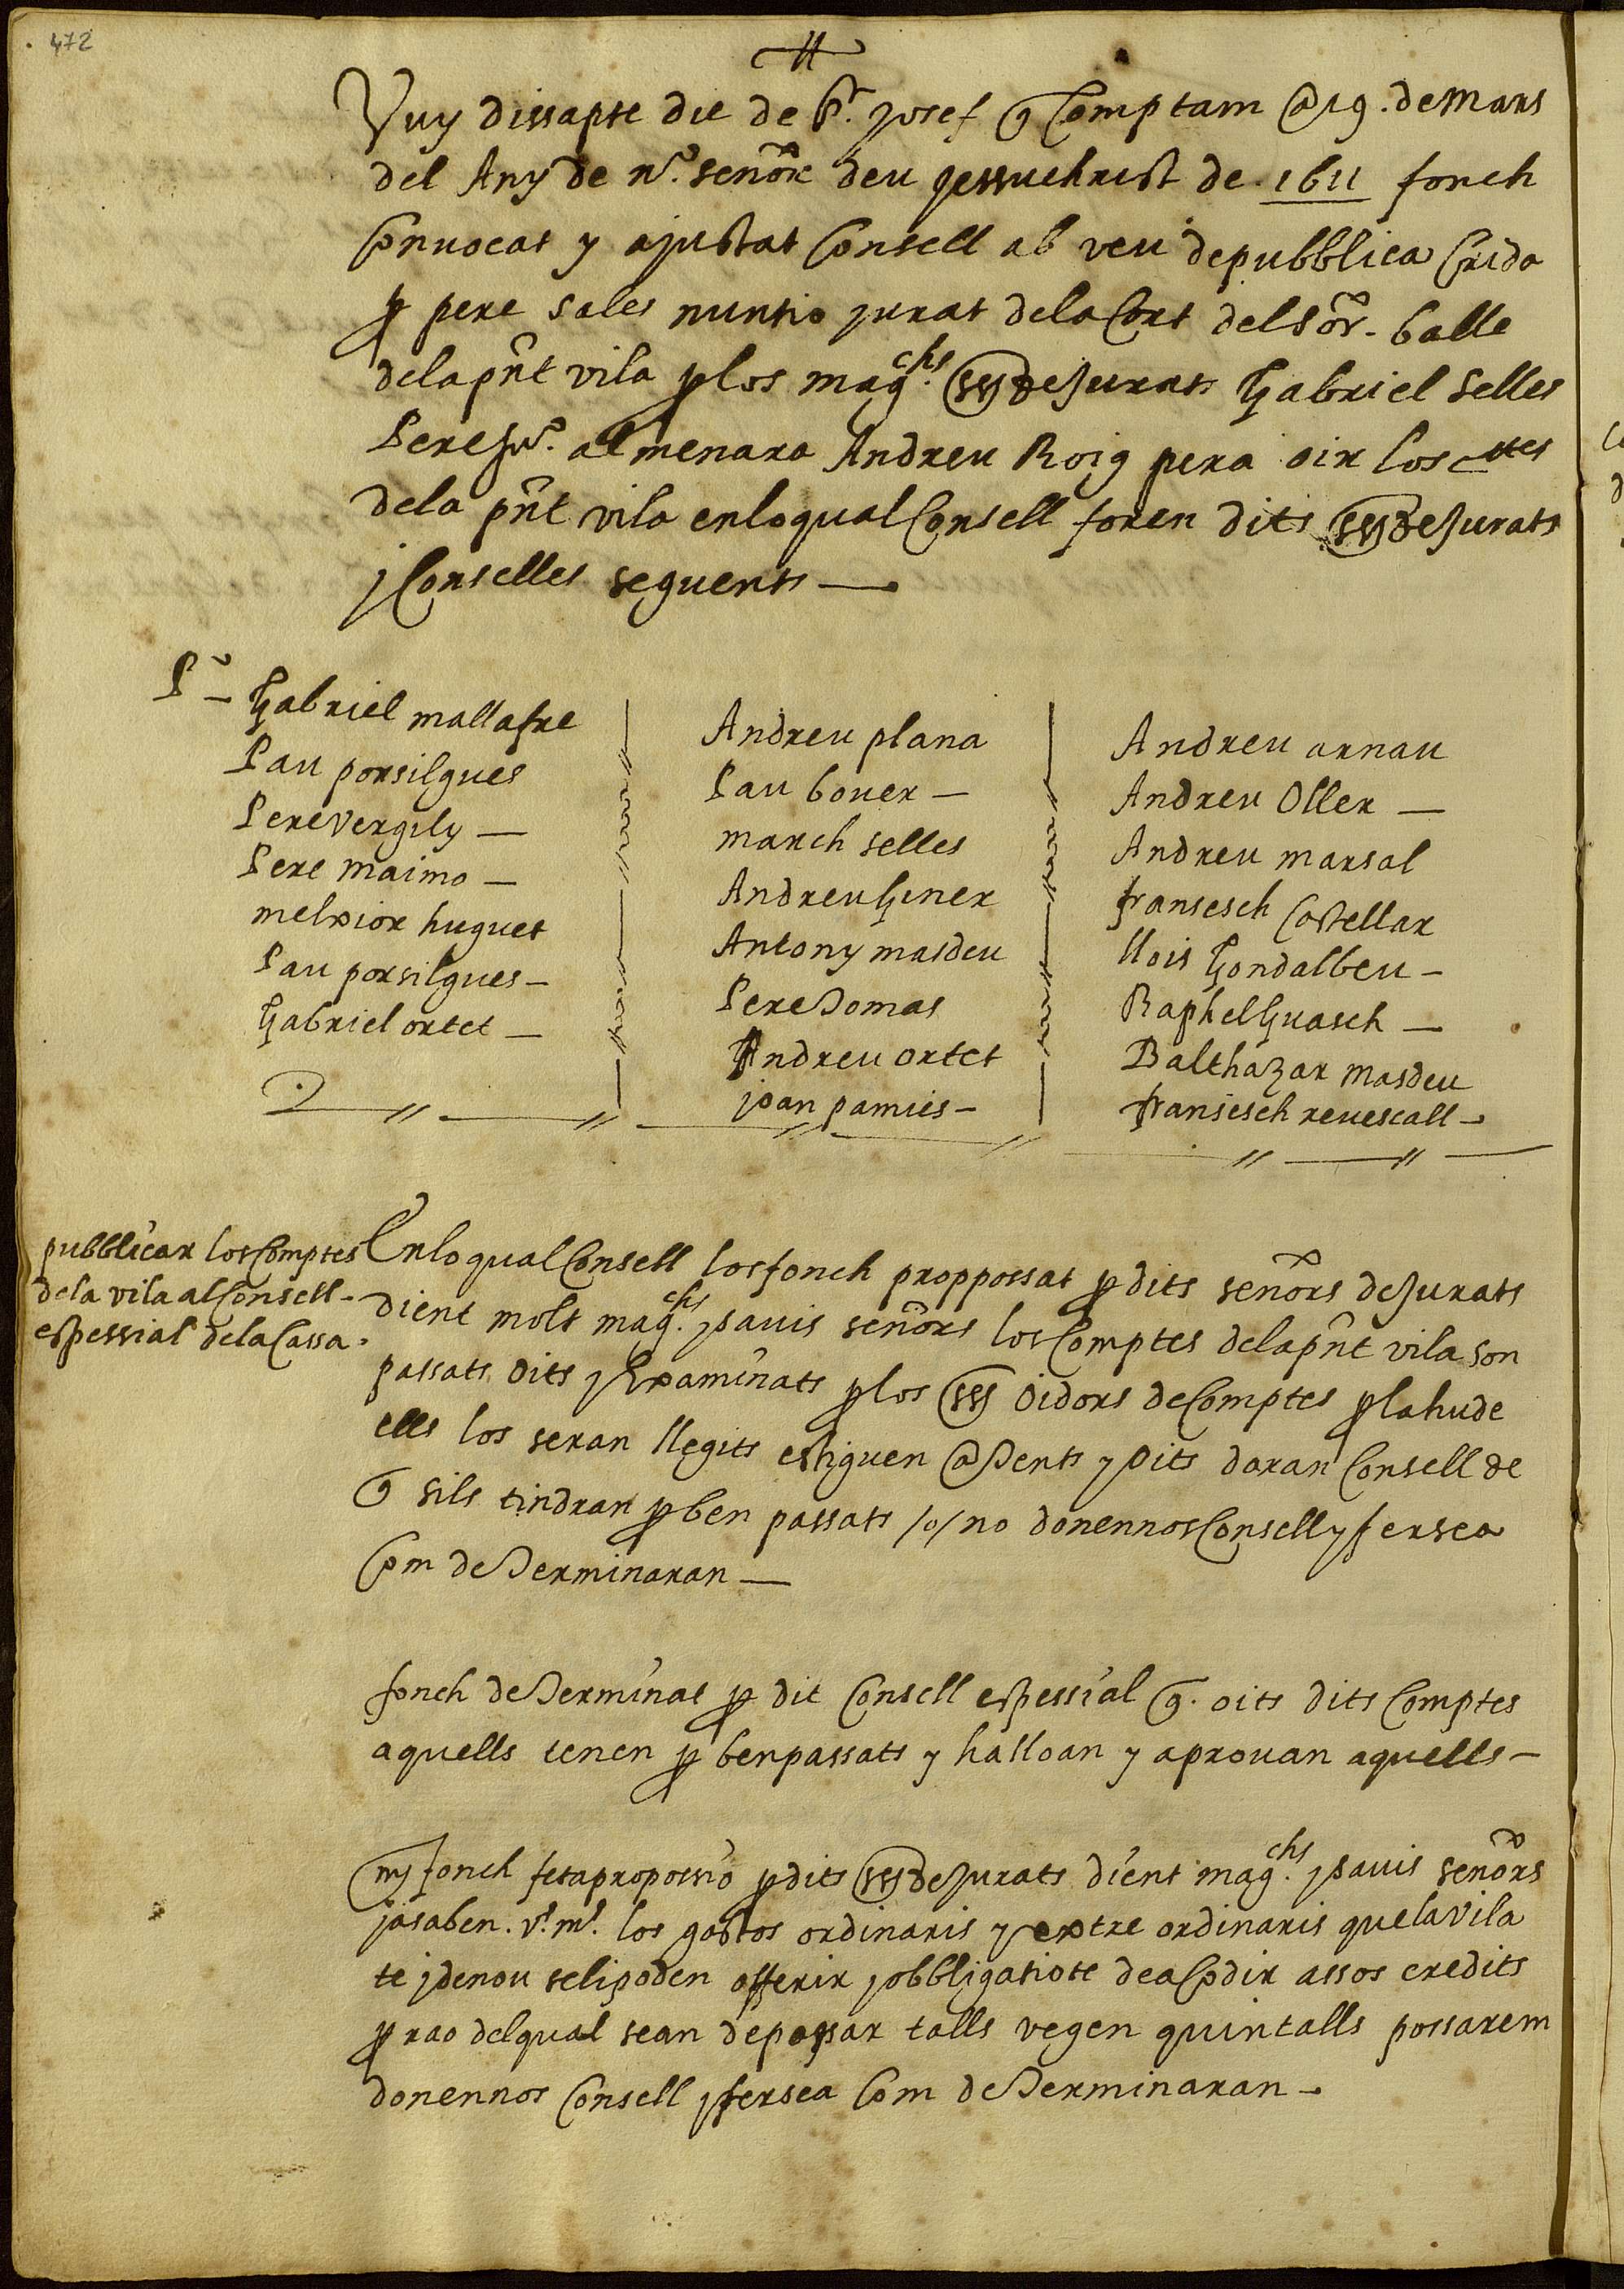 472
Vuy dissapte die de St. Josef q Comptam @ 19. de mars
del Any de nr. señor deu jessuchrist de .1611 fonch
Conuocat y ajustat Consell ab veu de pubblica Crida
p pere sales nuntio jurat de la Cort del Sor. balle
de la pnt vila p los mag.chs SSS de Jurats Gabriel Selles
Pere Jn. almenara Andreu Roig pera oir los
de la pnt vila en lo qual Consell foren dits SSS de Jurats
j Conselles seguents —
Pº – Gabriel mallafre
Pau porsilgues
Pere Vergily —
Pere maimo —
melxior huguet
Pau porsilgues –
Gabriel ortet —
Andreu plana
Pau bouer —
march selles
Andreu Giner
Antony masdeu
Pere Domas
Andreu ortet
joan pamies –
Andreu arnau
Andreu Oller —
Andreu marsal
fransesch Castellar
llois Gondalbeu –
Raphel Guasch —
Balthazar masdeu
fransesch reuescall –
pubblicar los Comptes
de la vila al Consell –
espessial de la Cassa .
En lo qual Consell los fonch proppossat p dits señors de Jurats
dient molt mag.chs y sauis señors los Comptes de la pnt vila son
passats oits y Examinats p los SSS Oidors de Comptes p la hu de
ells los seran llegits estiguen @tents y oits daran Consell de
q sils tindran p ben passats /o/ no donennos Consell y fer sea
Com determinaran —
fonch determinat p dit Consell espessial q. oits dits Comptes
aquells tenen p ben passats y halloan y aprouan aquells –
mj fonch feta propossio p dits SSS de Jurats dient mag.chs y sauis señors
ja saben .vs. ms. los gastos ordinaris y extre ordinaris que la vila
te j de nou se li poden offerir j obbligatio te de acodir a ssos credits
p rao del qual se an de possar talls vegen quin talls possarem
donennos Consell j fer sea Com determinaran –